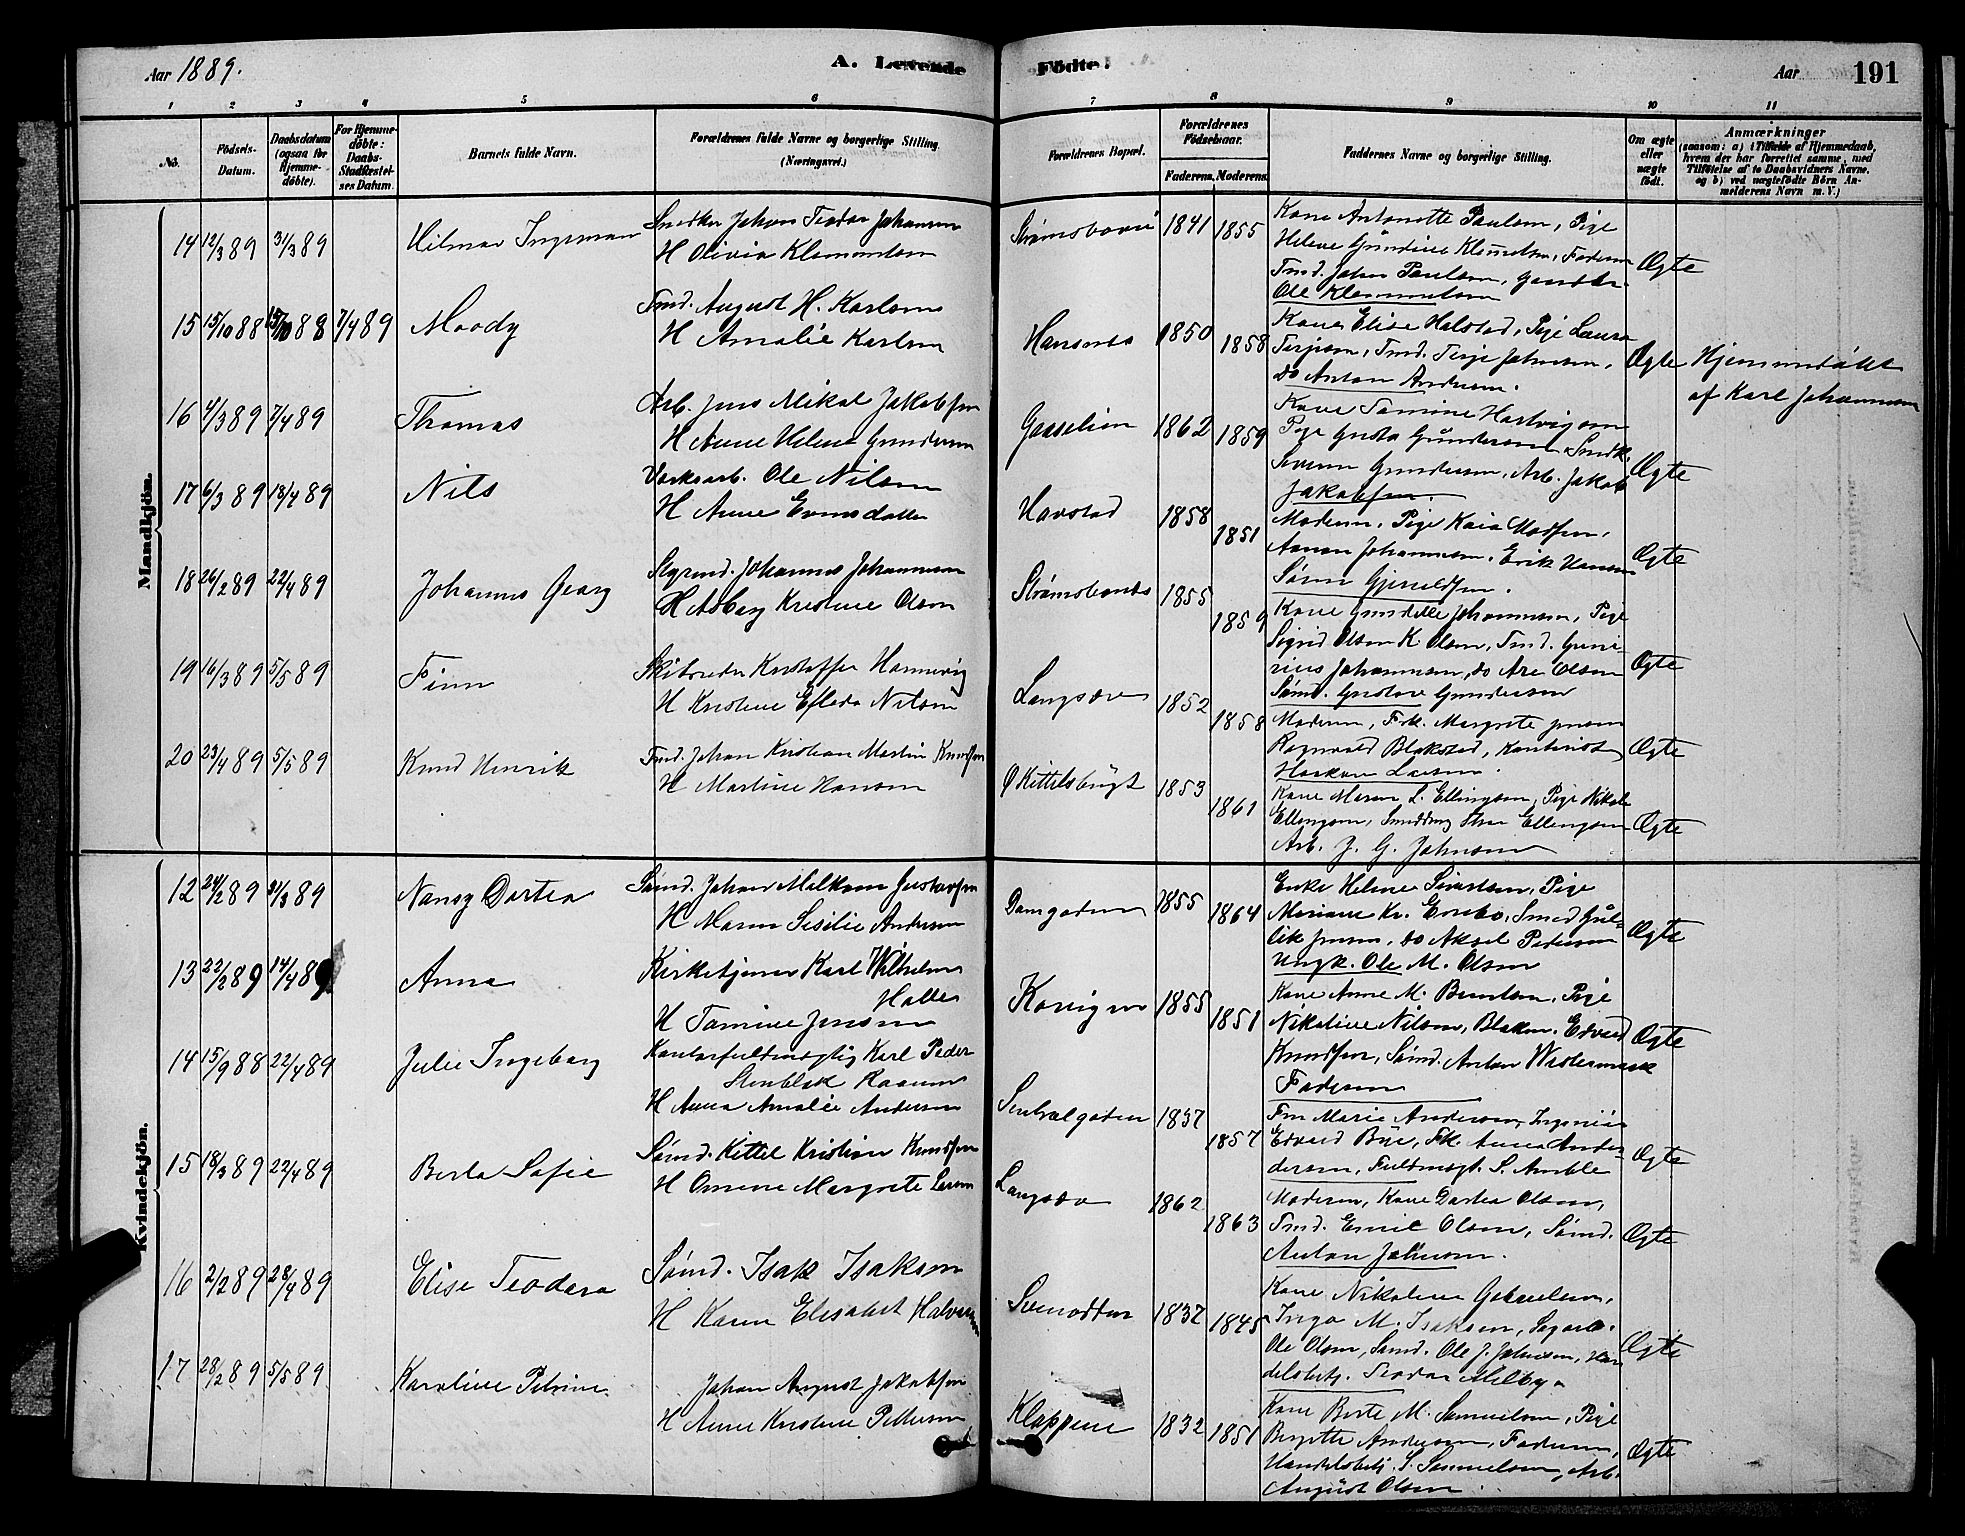 Aar 1889.
A. Levende Födte.
Aar 191
1 2 3 4 5 6 7 8 9 10 11
No.
Födsels-Datum.
Daabsdatum (ogsaa for Hjemme-döbte).
For Hjemme-döbte: Daabs-Stadfæstel-ses Datum.
Barnets fulde Navn.
Forældrenes fulde Navne og borgerlige Stilling.
(Næringsvei.)
Forældrenes Bopæl.
Forældrenes Födselsaar.
Faderens. Moderens.
Faddernes Navne og borgerlige Stilling.
Om ægte eller uægte födt.
Anmærkninger
(saasom: a) i Tilfælde af Hjemmedaab,
hvem der har forrettet samme, med
Tilföielse af to Daabsvidners Navne.
og b) ved uægtefödte Börn An-
melderens Navn m. V.)
Mandkjön.
14 12/3 89 31/3 89 Hilmar Ingeman Snedker Johan Teodor Johansen
H Olivia Klemmetsen
1841 1855
Kone Antonette Paulsen, Pige
Helene Gundine Klemmetsen, Faderen
Tmd. Johan Paulsen,
Ole Klemmetsen
Ægte
15 15/10 88 15/10 88 7/4 89 Moody Tmd. August H. Karlsen
H Amalie Karlsen
Hansnes 1850 1858
Kone Elise Halstad, Pige Laura
Terjesen, Tmd. Terje Johnsen,
do Anton Andersen.
Ægte Hjemmedøbt
af Karl Johannesen
16 4/3 89 7/4 89 Thomas Arb. Jens Mikal Jakobsen
H Anne Helene Gundersen
Gaaselien 1862 1859
Kone Tomine Hartvigsen
Pige Gusta Gundersen, Smedk.
Severin Gundersen, Arb. Jakob
Jakobsen.
Ægte
17 6/3 89 18/4 89 Nils Værksarb. Ole Nilsen
H Anne Evensdatter
Havstad 1858 1851
Moderen, Pige Kaia Madsen,
Aanon Johannesen, Erik Hansen
Søren Gjeruldsen.
Ægte
18 26/2 89 22/4 89 Johannes Georg Styrmd. Johannes Johannesen
H Asborg Kristine Olsen
Strømsbonæs 1855 1859
Kone Gundelle Johannesen, Pige
Sigrid Olsen K. Olsen, Tmd.
Johannesen, do Are Olsen
Sømd. Gustav Gundersen
Ægte
19 16/3 89 5/5 89 Finn Skibsreder Kristoffer Hannevig
H Kristine Elfleda Nilsen
Langsæve 1852 1858
Moderen, Frk. Margrete Jensen
Ragnvald Blakstad, Kontorist
Haakon Larsen.
Ægte
20 23/4 89 5/5 89 Knud Henrik Tmd. Johan Kristian Martin Knudsen
H Martine Hansen
Ø Kittelsbugt 1853 1861
Kone Maren L. Ellingsen, Pige
Ellingsen, Ellingsen
Arb. J. G. Johnsen
Ægte
Kvindekjön.
12 24/2 89 31/3 89 Nansy Dortea Sømd. Johan Malkom Gustavsen
H Maren Sesilie Andersen
Damgaden 1855 1864
Enke Helene Sivertsen, Pige
Mariane Kr. Enebo, Smed Gul-
lik Jensen, do Aksel Pedersen
Ungk. Ole M. Olsen
Ægte
13 22/2 89 14/4 89 Anna Kirketjener Karl Wilhelm
Holler
H Tomine Jensen
Kanigen 1855 1851
Kone Anne M. Berntsen, Pige
Nikoline Nilsen, Blakm. Edvard
Knudsen, Sømd. Anton Westermark
Faderen
Ægte
14 15/9 88 22/4 89 Julie Ingeborg Kontorfuldmægtig Karl Peder
Stenblok
H Anna Amalie Andersen
Sentralgaden 1837 1857
Fru Marie Andersen, Ingeniør
Edvard Bøe, Frk. Anna Ander-
dersen, Fuldmægt. S. Amble
Ægte
15 18/3 89 22/4 89 Berta Sofie Sømd. Kittel Kristian Knudsen
H Omine Margrete Larsen
Langsæv 1862 1863
Moderen, Kone Dortea Olsen,
Tmd. Emil Olsen, Sømd.
Anton Johnsen.
Ægte
16 2/2 89 28/4 89 Elise Teodora Sømd. Isak Isaksen
H Karen Elisabet Halvorsen
1837 1845
Kone Nikoline Gabrielsen,
Inga M. Isaksen,
Ole Olsen, Sømd. Ole J. Johnsen, Han
delsbetj. Teodor Melby.
Ægte
17 28/2 89 5/5 89 Karoline Petrine Johan August Jakobsen
H Anne Kristine Pettersen
Kloppene 1832 1851
Kone Berte M. Samuelsen, Pige
Birgitte Andersen, Faderen,
Handelsbetj. S. Samuelsen, Arb.
August Olsen.
Ægte